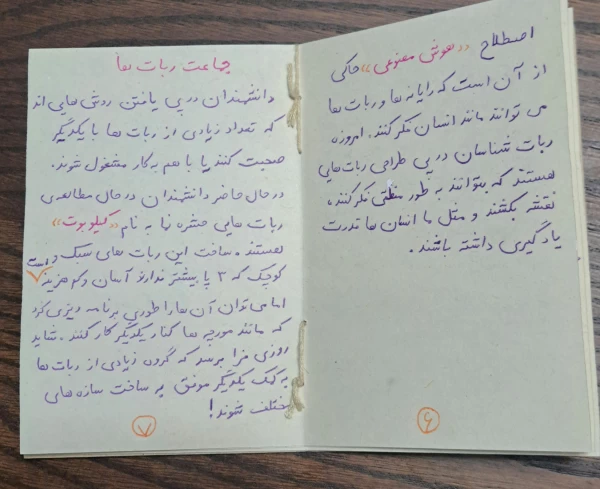 اصطلاح «هوش مصنوعی» حاکی
از آن است که رایانه ها و ربات ها
می توانند مانند انسان فکر کنند. امروزه
ربات شناسان در پی طراحی ربات هایی
هستند که بتوانند به طور منطقی فکر کنند،
نقشه بکشند و مثل ما انسان ها قدرت
یادگیری داشته باشند.
۶
جماعت ربات ها
دانشمندان در پی یافتن روش هایی اند
که تعداد زیادی از ربات ها با یکدیگر
صحبت کنند یا با هم به کار مشغول شوند.
در حال حاضر دانشمندان در حال مطالعه ی
ربات هایی حشره نما به نام «کیلوبوت»
هستند. ساخت این ربات های سبک و
کوچک که ۳ پا بیشتر ندارند آسان و کم هزینه است
اما می توان آن ها را طوری برنامه ریزی کرد
که مانند مورچه ها کنار یکدیگر کار کنند. شاید
روزی فرا برسد که گروه زیادی از ربات ها
به کمک یکدیگر موفق به ساخت سازه های
مختلف شوند!
۷